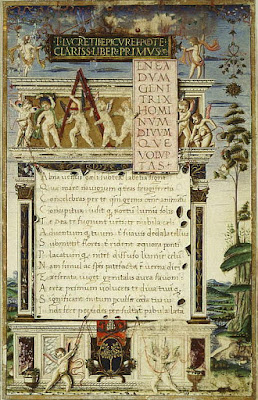 T LVCRETII EPICVREI POETE
CLARISS LIBER PRIMVS
A
ENEA
DVM
GENI
TRIX
HOMI
NVM
DIVVM
QVE
VOLVP
TAS
Alma uenus caeli subter labentia signa
Quae mare nauigerum quae terras frugiferentis
Concelebras per te quoniam genus omne animantum
Concipitur uisitq; exortum lumina solis
Te dea te fugiunt uenti te nubila caeli
Aduentumq; tuum tibi suauis dedala tellus
Submittit flores tibi rident aequora ponti
Placatumq; nitet diffuso lumine caelum
Nam simul ac species patefacta est uerna diei
Et reserata uiget genitabilis aura fauoni
Aeriae primum uolucres te diua tuumq;
Significant initum perculsae corda tua ui
Inde ferae pecudes persultant pabula laeta